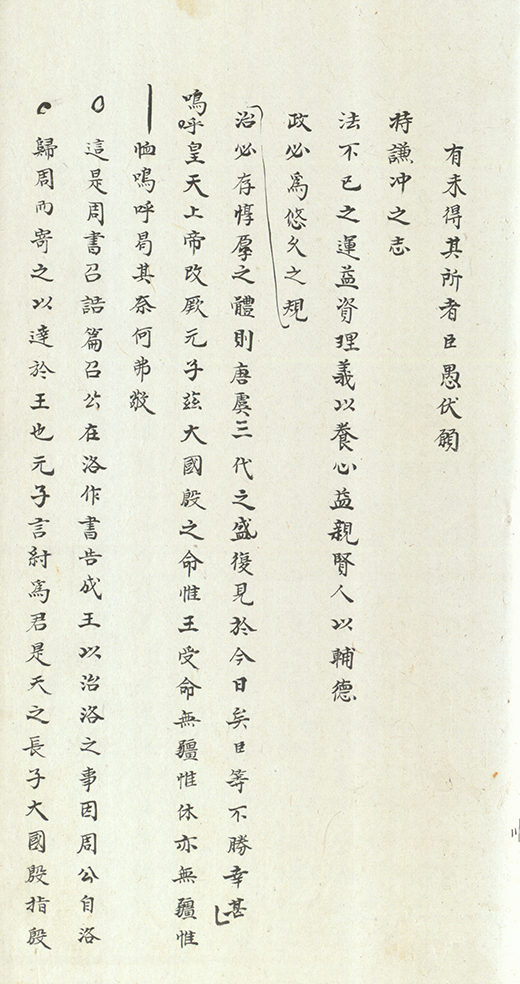 有未得其所者臣愚伏願
持謙冲之志
法不已之運益資理義以養心益親賢人以輔德
政必為悠久之規
治必存惇厚之體則唐虞三代之盛復見於今日矣臣等不勝幸甚
嗚呼皇天上帝改厥元子茲大國殷之命惟王受命無疆惟休亦無疆惟
恤嗚呼曷其奈何弗敬
這是周書召誥篇召公在洛作書告成王以治洛之事因周公自洛
歸周而寄之以達於王也元子言紂為君是天之長子大國殷指殷